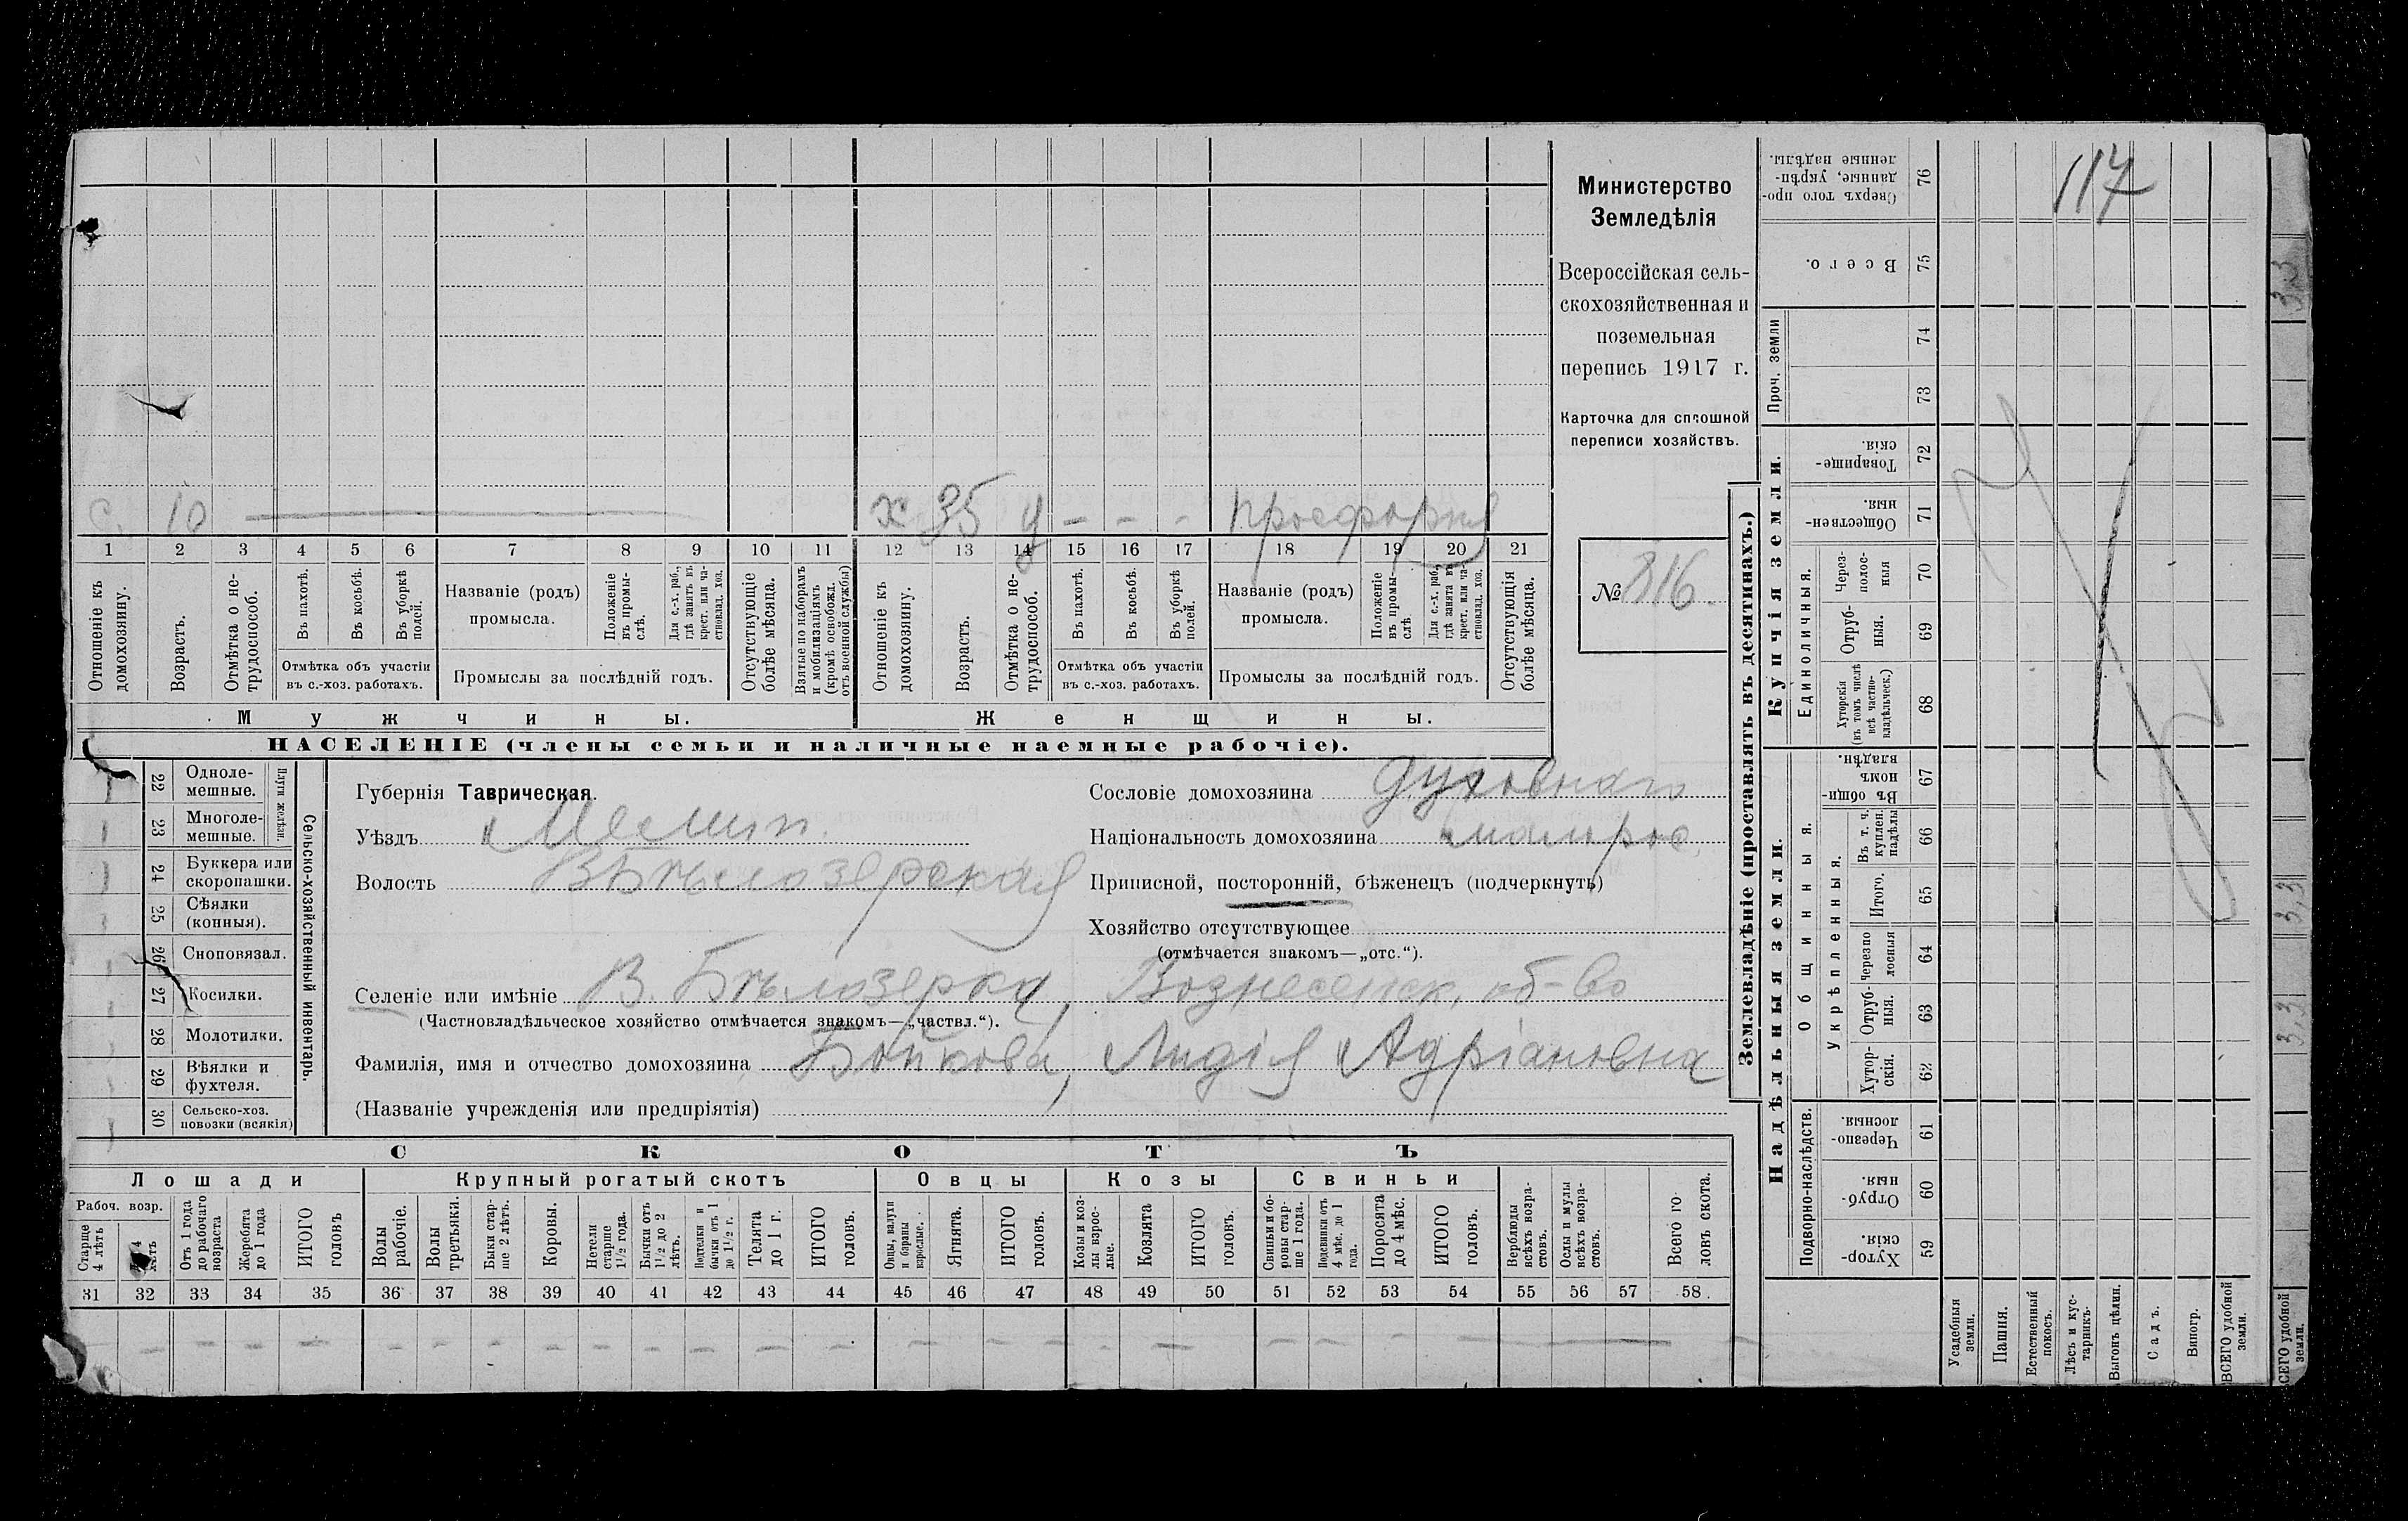 117
с. 10 — х 35 у - - - просфорня
1 2 3 4 5 6 7 8 9 10 11 12 13 14 15 16 17 18 19 20 21
Отношеніе къ домохозяину.
Возрастъ.
Отмѣтка о не-
трудоспособ.
Въ пахотѣ.
Въ косьбѣ.
Въ уборкѣ полей.
Отмѣтка объ участіи
въ с.-хоз. работахъ.
Названіе (родъ)
промысла.
Положеніе въ промы-
слѣ.
Для с.-х. раб.,
гдѣ занятъ въ
крест. или ча-
стновлад. хоз.
Промыслы за послѣдній годъ.
Отсутствующіе
болѣе мѣсяца.
Взятые по наборамъ
и мобилизаціямъ
(кромѣ освобожд.
отъ военной службы)
Отношеніе къ
домохозяину.
Возрастъ.
Отмѣтка о не-
трудоспособ.
Въ пахотѣ.
Въ косьбѣ.
Въ уборкѣ
полей.
Отмѣтка объ участіи
въ с.-хоз. работахъ.
Названіе (родъ)
промысла.
Положеніе
въ промы-
слѣ.
Для с.-х. раб.,
гдѣ занята въ
крест. или ча-
стновлад. хоз.
Промыслы за послѣдній годъ.
Отсутствующія
болѣе мѣсяца.
Мужчины.
Женщины.
НАСЕЛЕНІЕ (члены семьи и наличные наемные рабочіе).
Министерство
Земледѣлія
Всероссійская сель-
скохозяйственная и
поземельная
перепись 1917 г.
Карточка для сплошной
переписи хозяйствъ.
№ 816.
22 Одноле-
мешные.
23 Многоле-
мешные.
Плуги желѣзн.
24 Буккера или
скоропашки.
25 Сѣялки
(конныя).
26 Сноповязал.
27 Косилки.
28 Молотилки.
29 Вѣялки и
фухтеля.
30 Сельско-хоз.
повозки (всякія)
Сельско-хозяйственный инвентарь.
Губернія Таврическая.
Уѣздъ Мелит.
Волость В Бѣлозерская
Сословіе домохозяина духовнаго
Національность домохозяина малорос.
Приписной, посторонній, бѣженецъ (подчеркнуть)
Хозяйство отсутствующее
(отмѣчается знакомъ—„отс.“).
Селеніе или имѣніе В. Бѣлозерка, Вознесенск. об-во
(Частновладѣльческое хозяйство отмѣчается знакомъ—„частвл.“).
Фамилія, имя и отчество домохозяина Бойкова, Лидія Адріановна
(Названіе учрежденія или предпріятія)
СКОТЪ
Лошади
Крупный рогатый скотъ
Овцы
Козы
Свиньи
Рабоч. возр.
Старше
4 лѣтъ
4
лѣтъ
Отъ 1 года
до рабочаго
возраста
Жеребята
до 1 года
ИТОГО
головъ
Волы
рабочіе.
Волы
третьяки.
Быки стар-
ше 2 лѣтъ.
Коровы.
Нетели
старше
1½ года.
Бычки отъ
1½ до 2
лѣтъ.
Подтелки и
бычки отъ 1
до 1½ г.
Телята
до 1 г.
ИТОГО
головъ.
Овцы, валухи
и бараны
взрослые.
Ягнята.
ИТОГО
головъ.
Козы и коз-
лы взрос-
лые.
Козлята
ИТОГО
головъ.
Свиньи и бо-
ровы стар-
ше 1 года.
Подсвинки отъ
4 мѣс. до 1
года.
Поросята
до 4 мѣс.
ИТОГО
головъ.
Верблюды
всѣхъ возра-
стовъ.
Ослы и мулы
всѣхъ возра-
стовъ.
Всего го-
ловъ скота.
31 32 33 34 35 36 37 38 39 40 41 42 43 44 45 46 47 48 49 50 51 52 53 54 55 56 57 58
Землевладѣніе (проставлять въ десятинахъ.)
Сверхъ того про-
данные, укрѣп-
ленные надѣлы.
76
Всего.
75
Проч. земли
74
73
Купчія земли.
Товарище-
скія.
72
Обществен-
ныя.
71
Единоличныя.
Через-
полос-
ныя
70
Отруб-
ныя.
69
Хуторскія
(въ томъ числѣ
всѣ частно-
владѣльческ.)
68
Надѣльныя земли.
Общинныя.
Въ общи-
номъ
владѣн.
67
Укрѣпленныя.
Въ т. ч.
куплен.
надѣлы
66
Итого.
65
Черезпо
лосныя
64
Отруб-
ныя.
63
Хутор-
скія.
62
Подворно-наслѣдств.
Черезпо-
лосныя.
61
Отруб-
ныя.
60
Хутор-
скія.
59
Усадебныя
земли.
Пашня.
Естественный
покосъ.
Лѣсъ и кус-
тарникъ.
Выгонъ цѣлин.
Садъ.
Виногр.
ВСЕГО удобной
земли.
3,3
3,3
3,3
СЕГО удобной
земли.